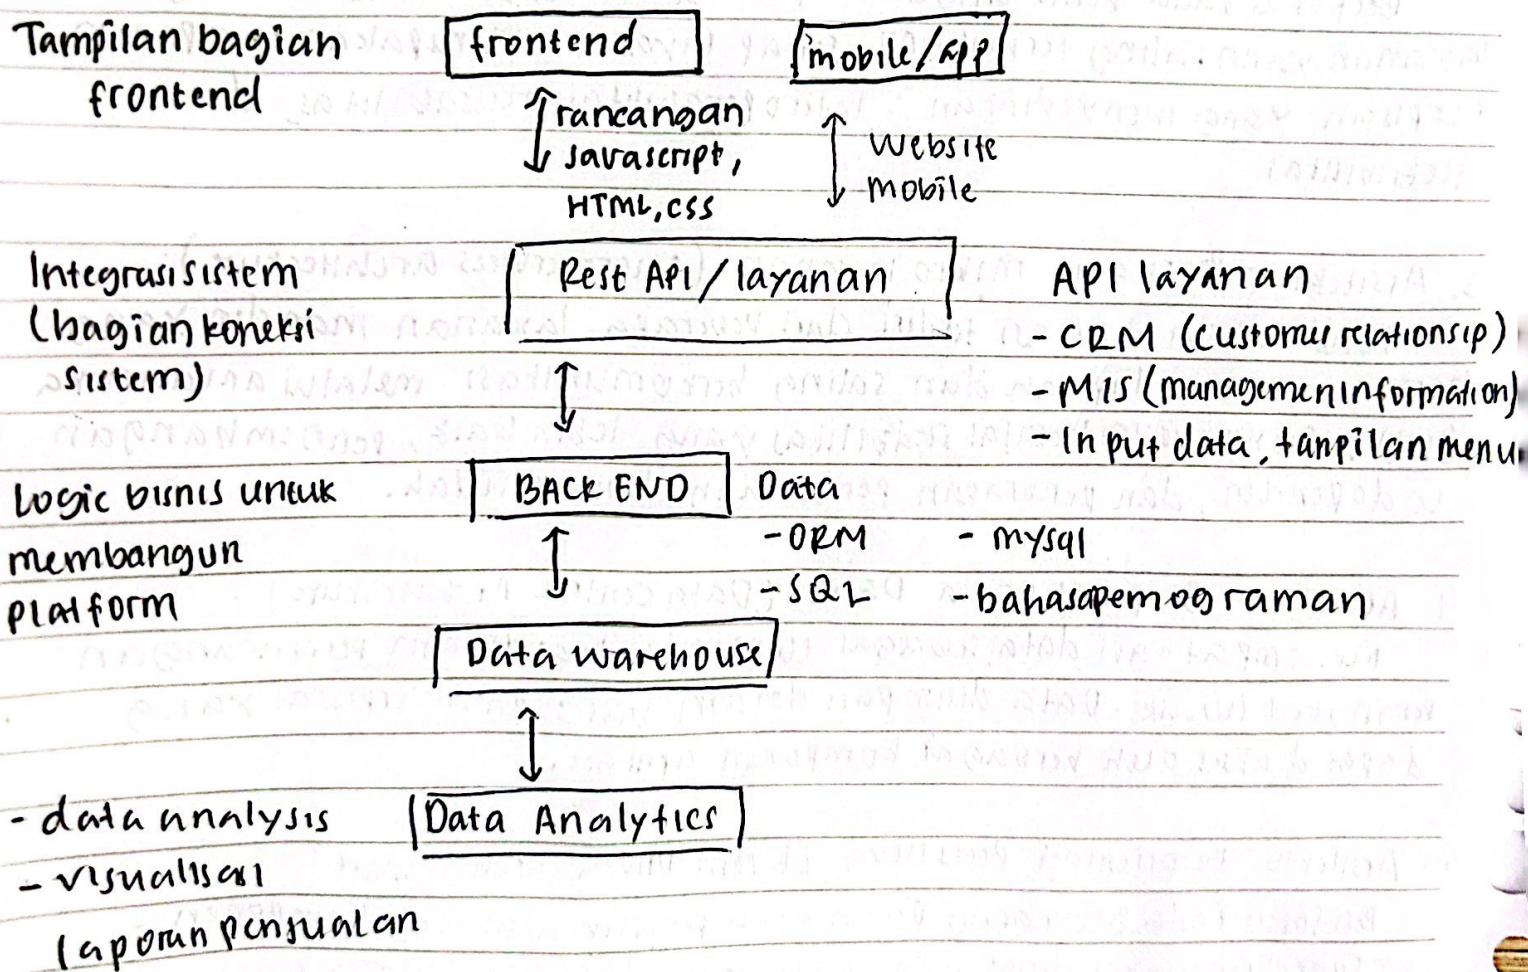 Tampilan bagian
frontend
frontend
mobile/app
rancangan
Javascript,
HTML, CSS
Website
mobile
Integrasi sistem
(bagian koneksi
sistem)
Rest API / layanan
API layanan
- CRM (Customer relationsip)
- MIS (managemen Information)
- Input data, tampilan menu
Logic bisnis untuk
membangun
platform
BACK END
Data
- ORM
- mysql
- SQL
- bahasa pemograman
Data Warehouse
- data analysis
- visualisasi
laporan penjualan
Data Analytics